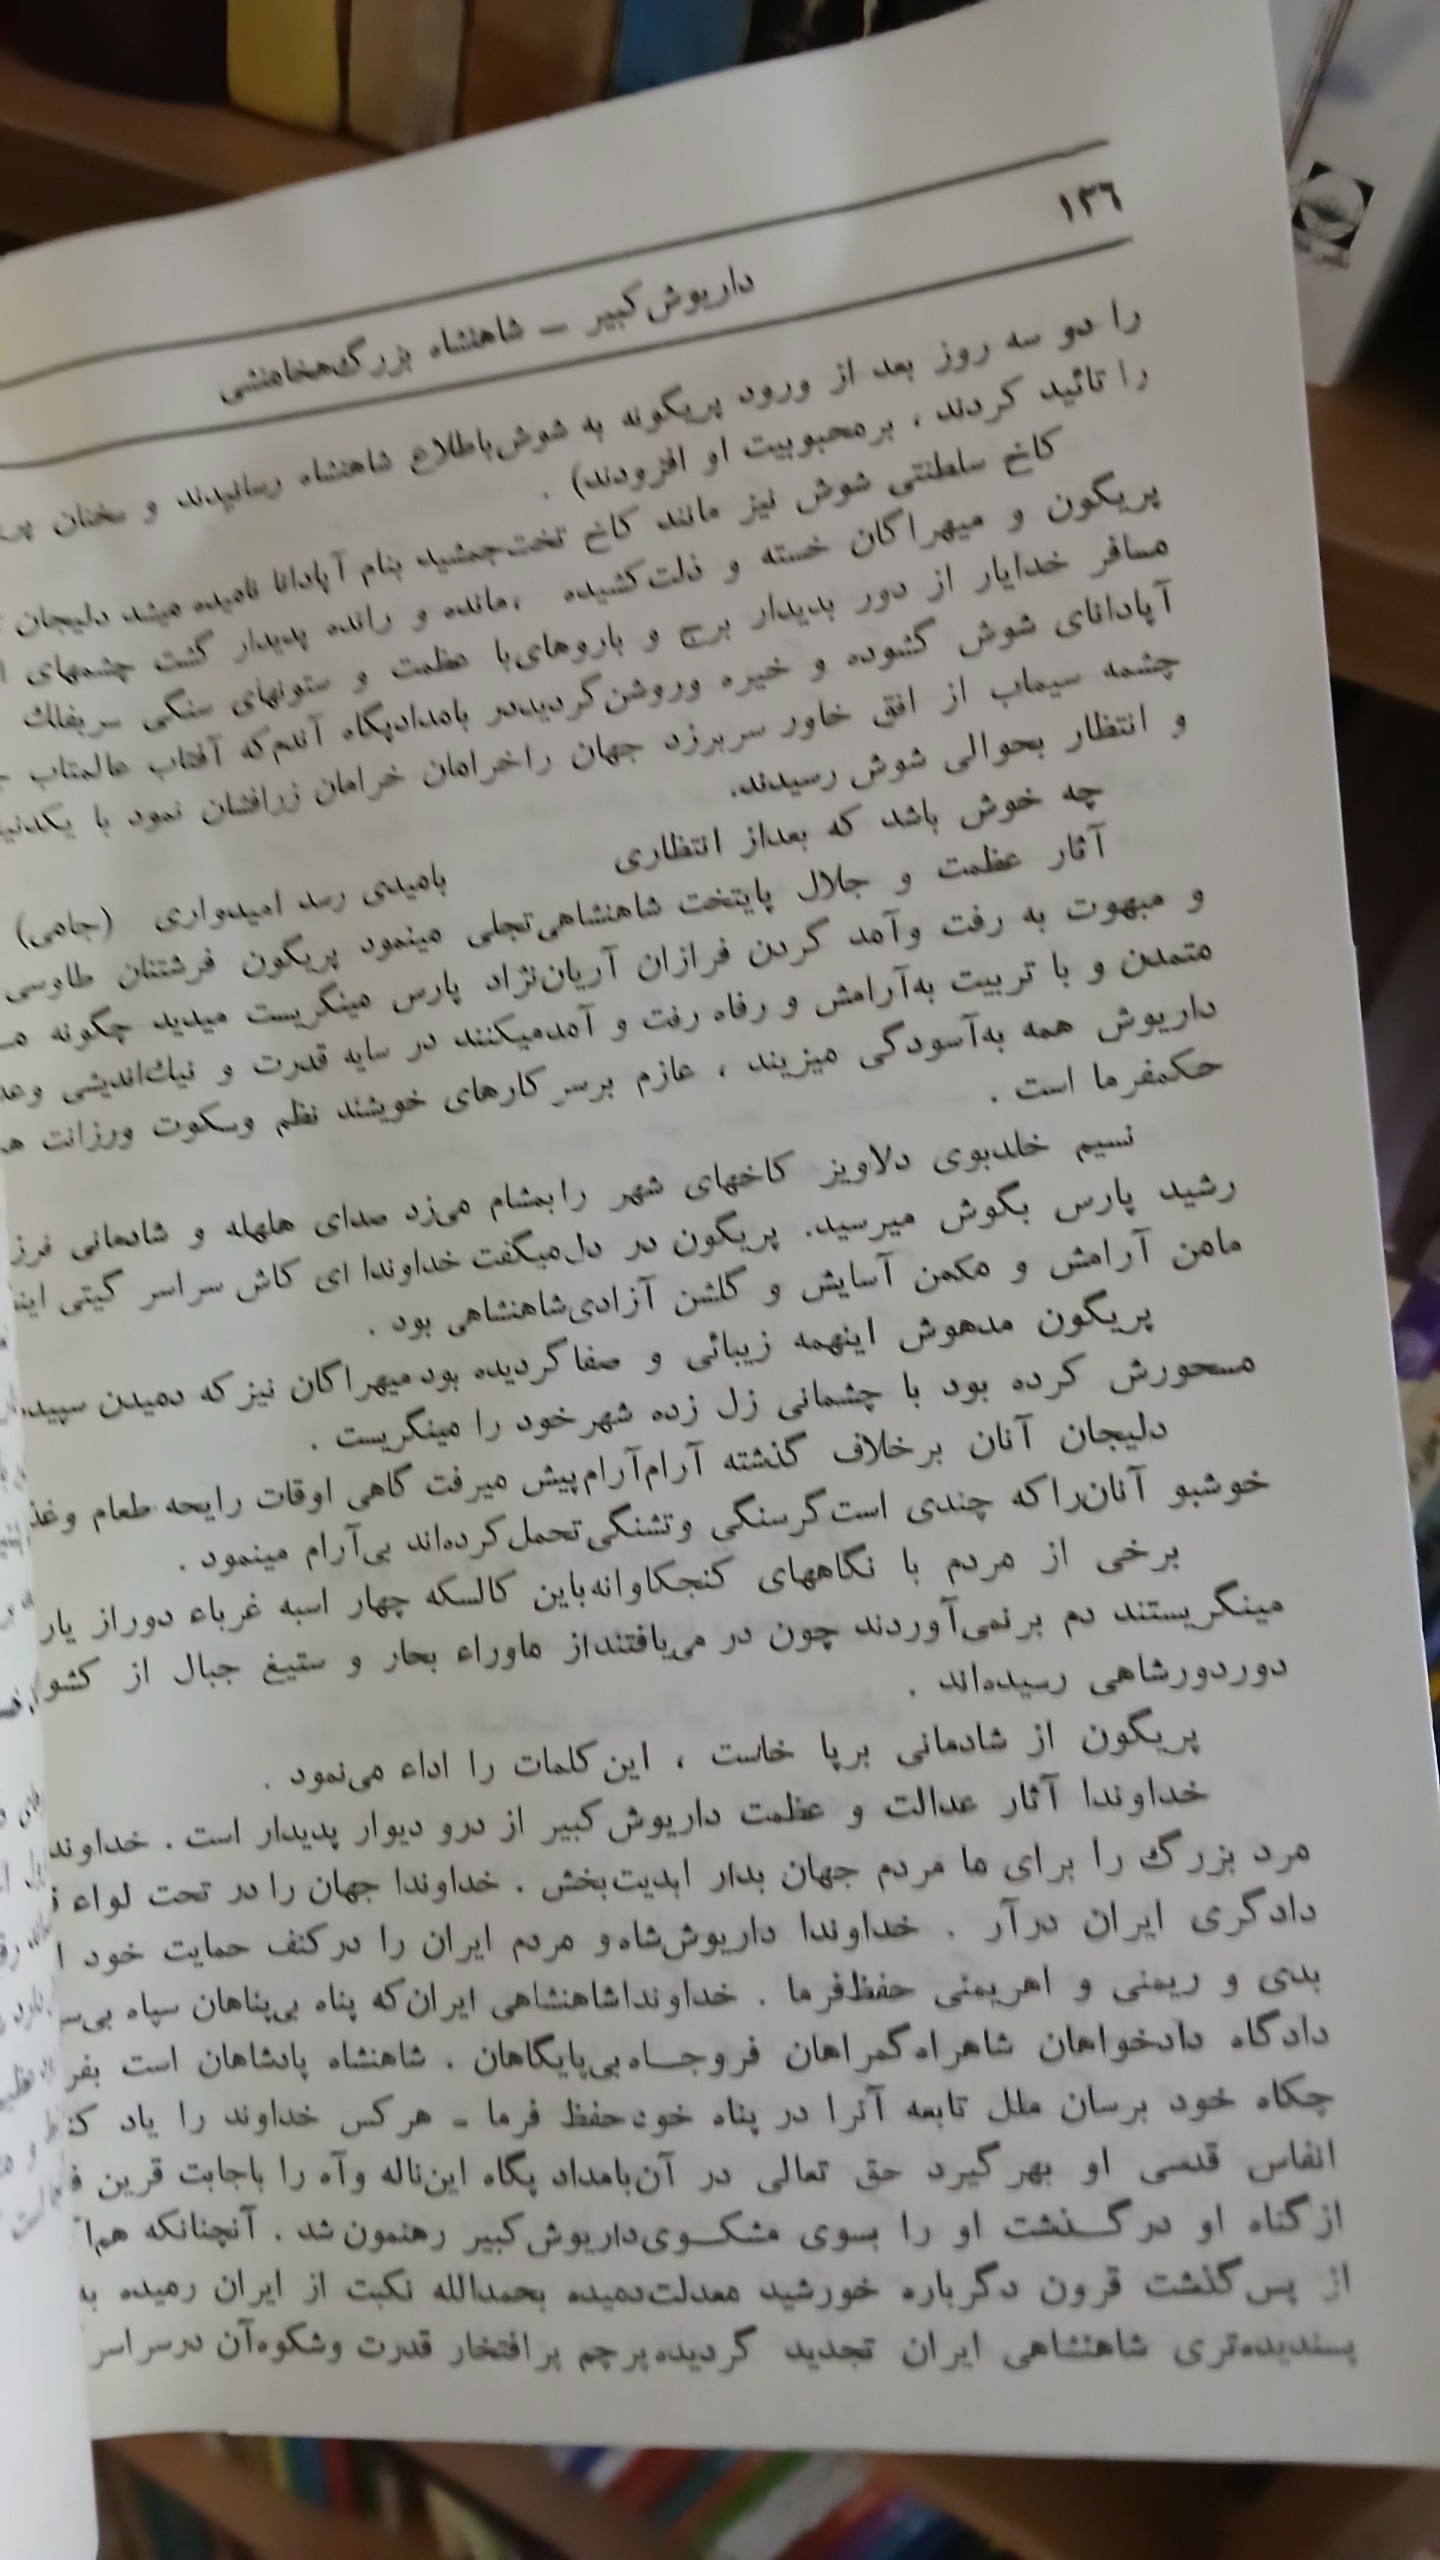 ۱۳۶
داریوش‌کبیر – شاهنشاه بزرگ‌هخامنشی
را دو سه روز بعد از ورود پریگونه به شوش‌باطلاع شاهنشاه رسانیدند و سخنان
را تائید کردند ، برمحبوبیت او افزودند) .
کاخ سلطنتی شوش نیز مانند کاخ تخت‌جمشید بنام آپادانا نامیده میشد دلیجان
پریگون و میهراکان خسته و ذلت‌کشیده ،مانده و رانده پدیدار گشت چشمهای
مسافر خدایار از دور بدیدار برج و باروهای‌با عظمت و ستونهای سنگی سربفلك
آپادانای شوش گشوده و خیره وروشن‌گردیددر بامدادپگاه آندم‌که آفتاب عالمتاب
چشمه سیماب از افق خاور سربرزد جهان راخرامان خرامان زرافشان نمود با یکدنیا
و انتظار بحوالی شوش رسیدند.
چه خوش باشد که بعداز انتظاری بامیدی رسد امیدواری (جامی)
آثار عظمت و جلال پایتخت شاهنشاهی‌تجلی مینمود پریگون فرشتنان طاوسی
و مبهوت به رفت وآمد گردن فرازان آریان‌نژاد پارس مینگریست میدید چگونه
متمدن و با تربیت به‌آرامش و رفاه رفت و آمدمیکنند در سایه قدرت و نیك‌اندیشی
داریوش همه به‌آسودگی میزیند ، عازم برسر کارهای خویشند نظم وسکوت ورزانت
حکمفرما است .
نسیم خلدبوی دلاویز کاخهای شهر رابمشام می‌زد صدای هلهله و شادمانی
رشید پارس بگوش میرسید. پریگون در دل‌میگفت خداوندا ای کاش سراسر گیتی
مامن آرامش و مکمن آسایش و گلشن آزادی‌شاهنشاهی بود .
پریگون مدهوش اینهمه زیبائی و صفاگردیده بود میهراکان نیز که دمیدن
مسحورش کرده بود با چشمانی زل زده شهرخود را مینگریست .
دلیجان آنان برخلاف گذشته آرام‌آرام‌پیش میرفت گاهی اوقات رایحه طعام
خوشبو آنان‌راکه چندی است‌گرسنگی وتشنگی‌تحمل‌کرده‌اند بی‌آرام مینمود .
برخی از مردم با نگاههای کنجکاوانه‌باین کالسکه چهار اسبه غرباء دوراز یار
مینگریستند دم برنمی‌آوردند چون در می‌یافتنداز ماوراء بحار و ستیغ جبال از
دوردورشاهی رسیده‌اند .
پریگون از شادمانی برپا خاست ، این‌کلمات را اداء می‌نمود .
خداوندا آثار عدالت و عظمت داریوش‌کبیر از درو دیوار پدیدار است .
مرد بزرگ را برای ما مردم جهان بدار ابدیت‌بخش . خداوندا جهان را در تحت لواء
دادگری ایران درآر . خداوندا داریوش‌شاه‌و مردم ایران را درکنف حمایت خود
بدی و ریمنی و اهریمنی حفظ‌فرما . خداونداشاهنشاهی ایران‌که پناه بی‌پناهان سپاه
دادگاه دادخواهان شاهراه‌گمراهان فروجـاه‌بی‌پایگاهان . شاهنشاه پادشاهان است
چکاه خود برسان ملل تابعه آنرا در پناه خودحفظ فرما ـ هرکس خداوند را یاد
انفاس قدسی او بهرگیرد حق تعالی در آن‌بامداد پگاه این‌ناله وآه را باجابت قرین
ازگناه او درگـذشت او را بسوی مشکـوی‌داریوش‌کبیر رهنمون‌شد . آنچنانکه
از پس‌گذشت قرون دگرباره خورشید معدلت‌دمیده بحمدالله نکبت از ایران رمیده
پسندیده‌تری شاهنشاهی ایران تجدید گردیده‌پرچم پرافتخار قدرت وشکوه‌آن درسراسر